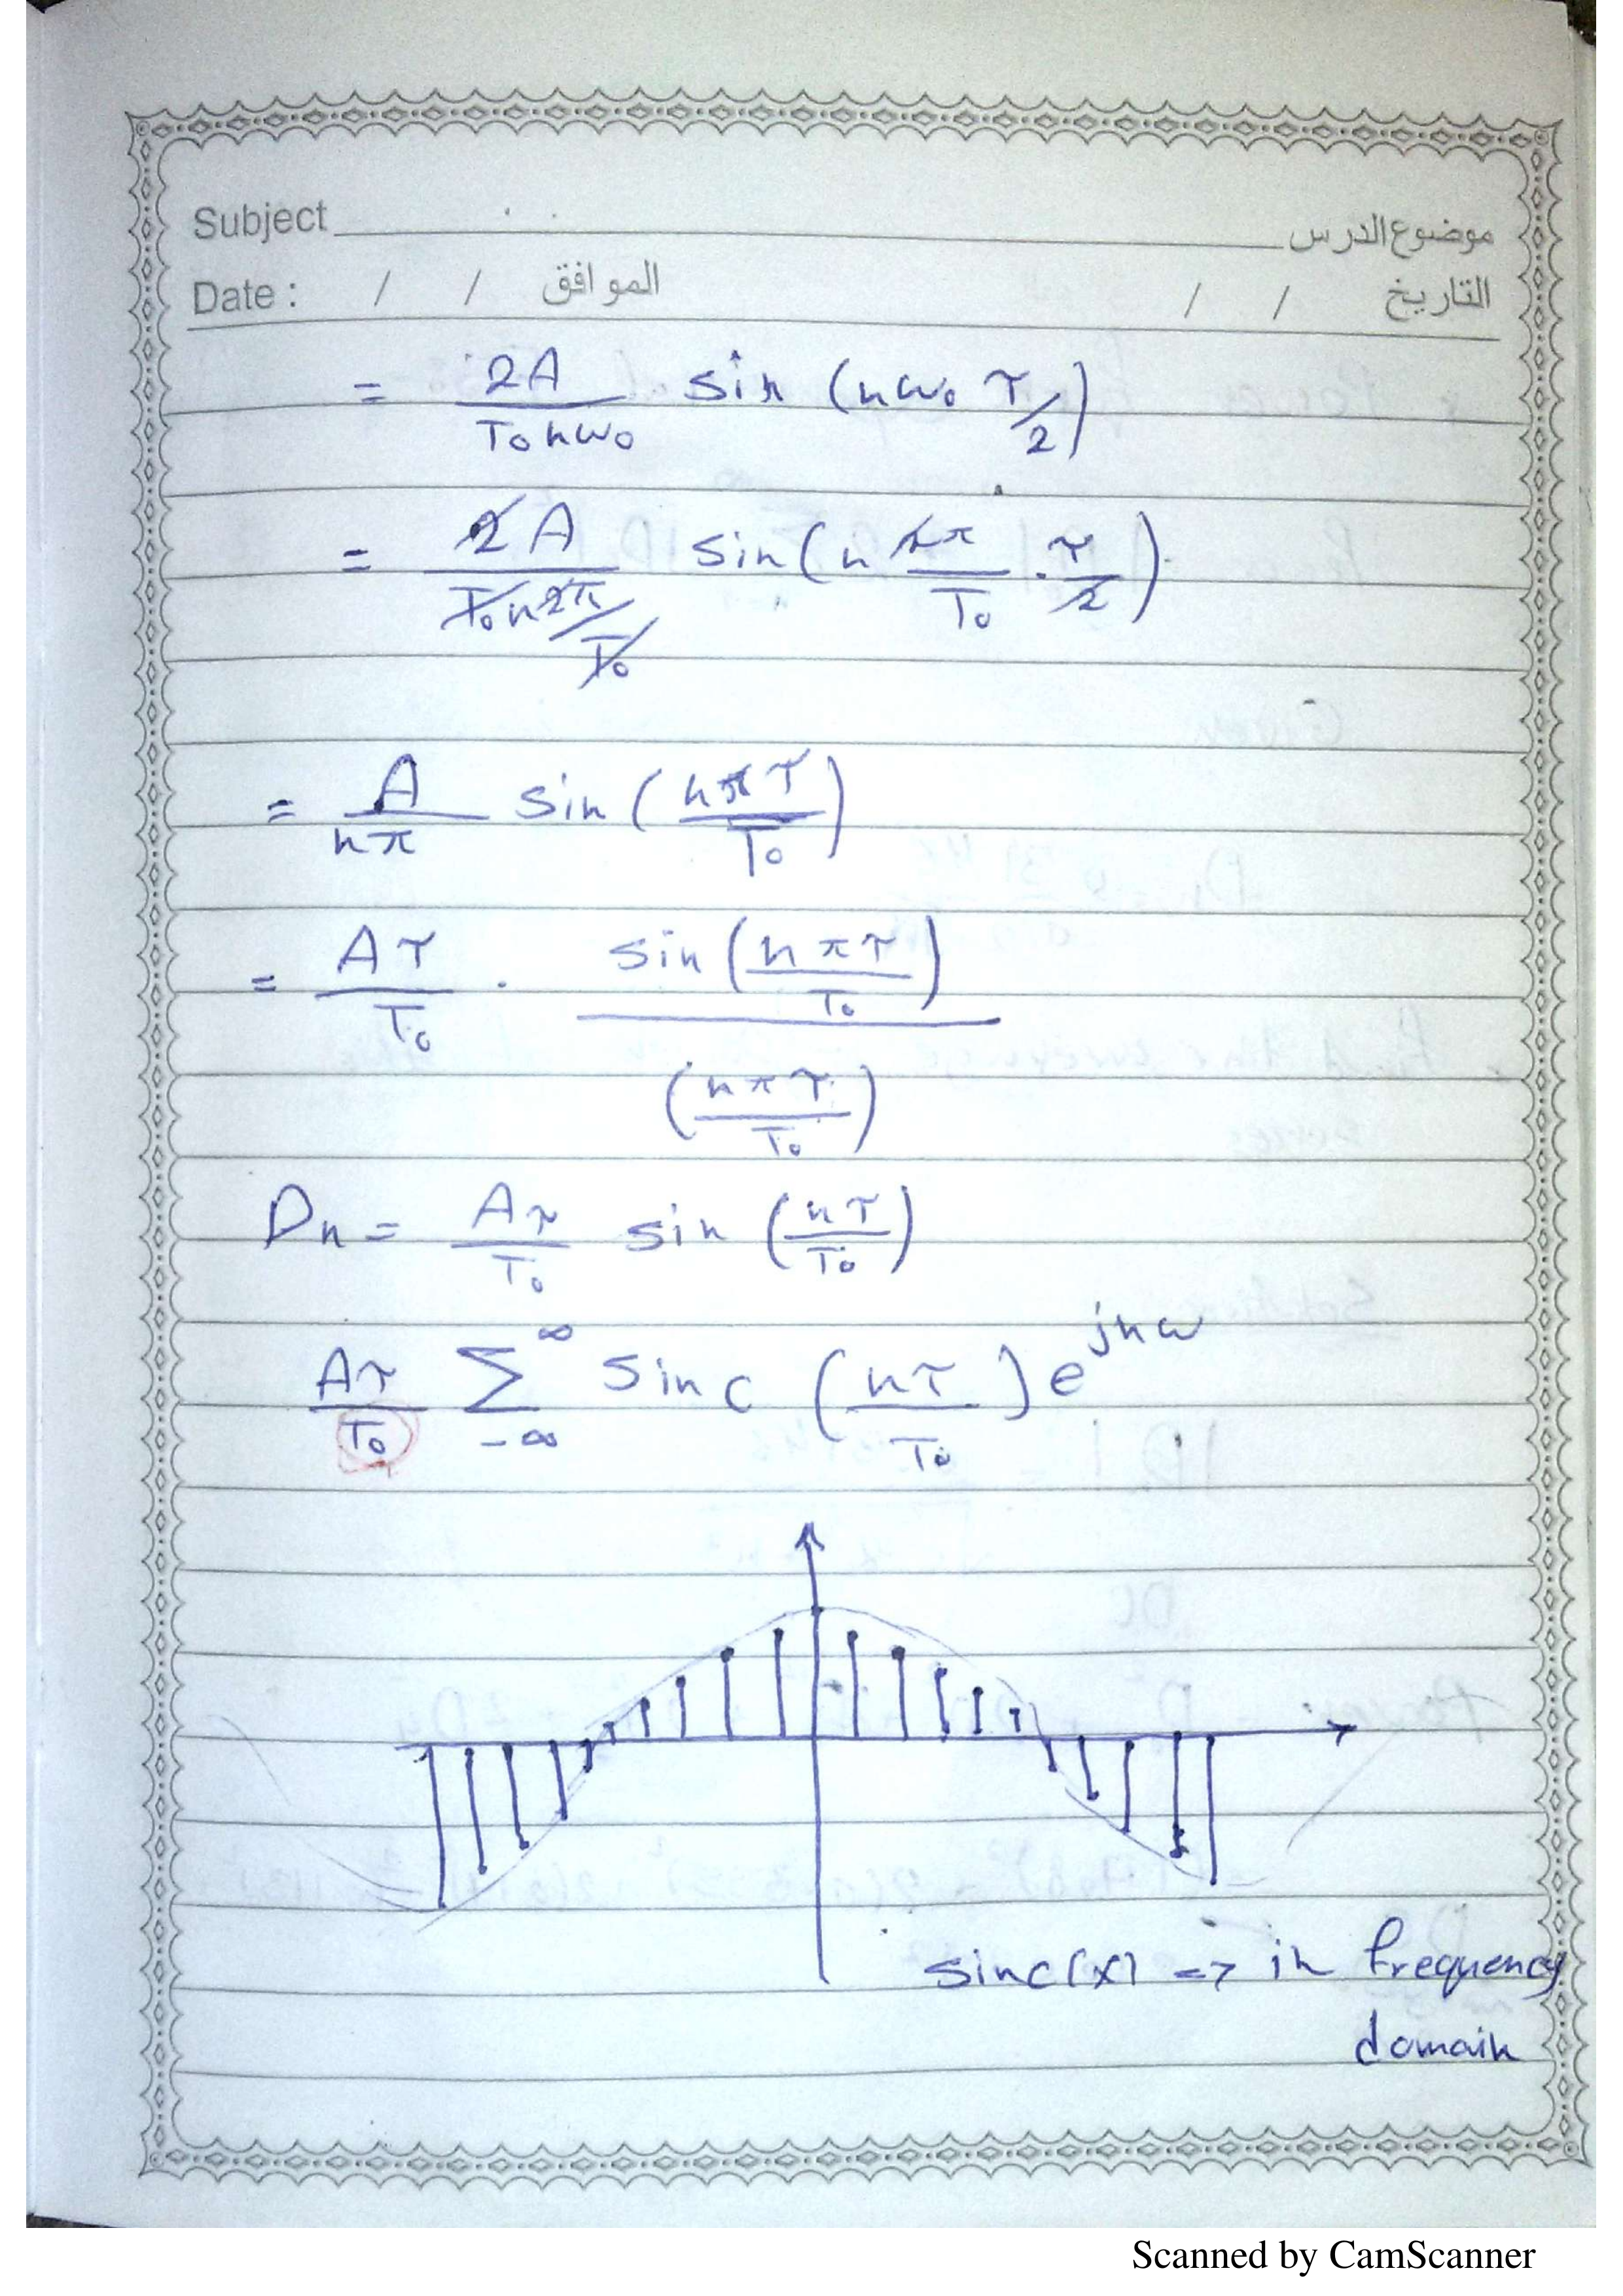 Subject موضوع الدرس
Date : / / الموافق / / التاريخ
= 2A/(T₀nω₀) sin (nω₀ τ/2)
= 2A/(T₀n2π/T₀) sin(n 2π/T₀ . τ/2)
= A/(nπ) sin (nπτ/T₀)
= Aτ/T₀ . sin(nπτ/T₀)/(nπτ/T₀)
Dn = Aτ/T₀ sin (nτ/T₀)
Aτ/T₀ ∑_{-∞}^{∞} sinc (nτ/T₀) e^{jnω}
sinc(x) => in frequency
domain
Scanned by CamScanner